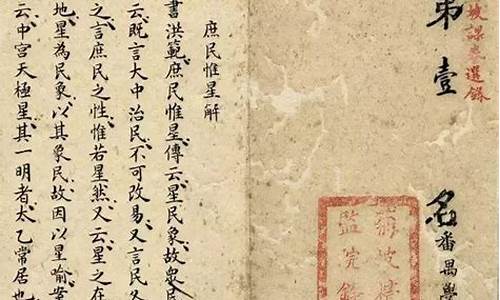 坡課卷選錄
第壹名
番禺學
菊坡精
監院錄
庶民惟星解
書洪範庶民惟星傳云星民象故眾民
云既言大中治民不可改易又言民
之言庶民之性惟若星然又云星之在
地星為民象以其象民故因以星喻案
云中宮天極星其一明者太乙常居也